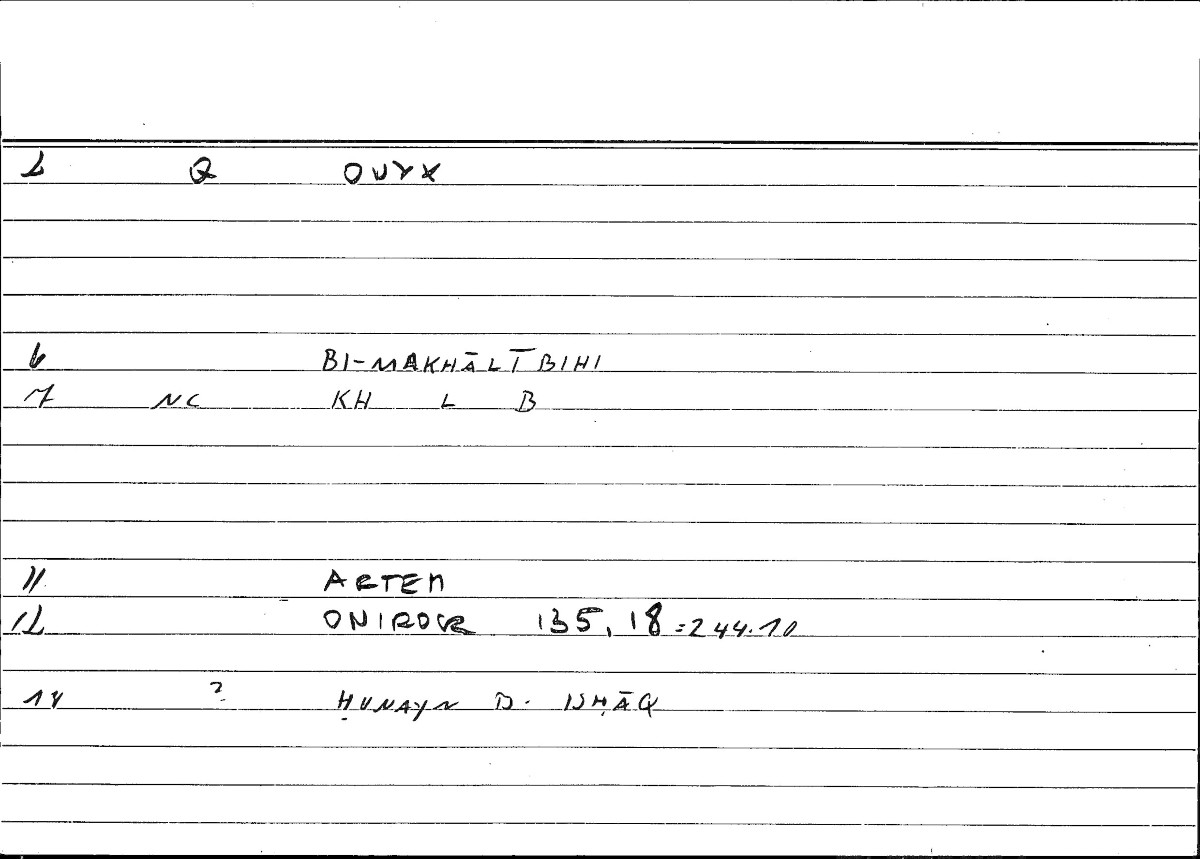 2 Q ONYX
6 BI-MAKHĀLĪBIHI
7 NC KH L B
11 ARTEM
12 ONIROCR 135, 18 = 244.10
14 ? ḤUNAYN B. ISḤĀQ